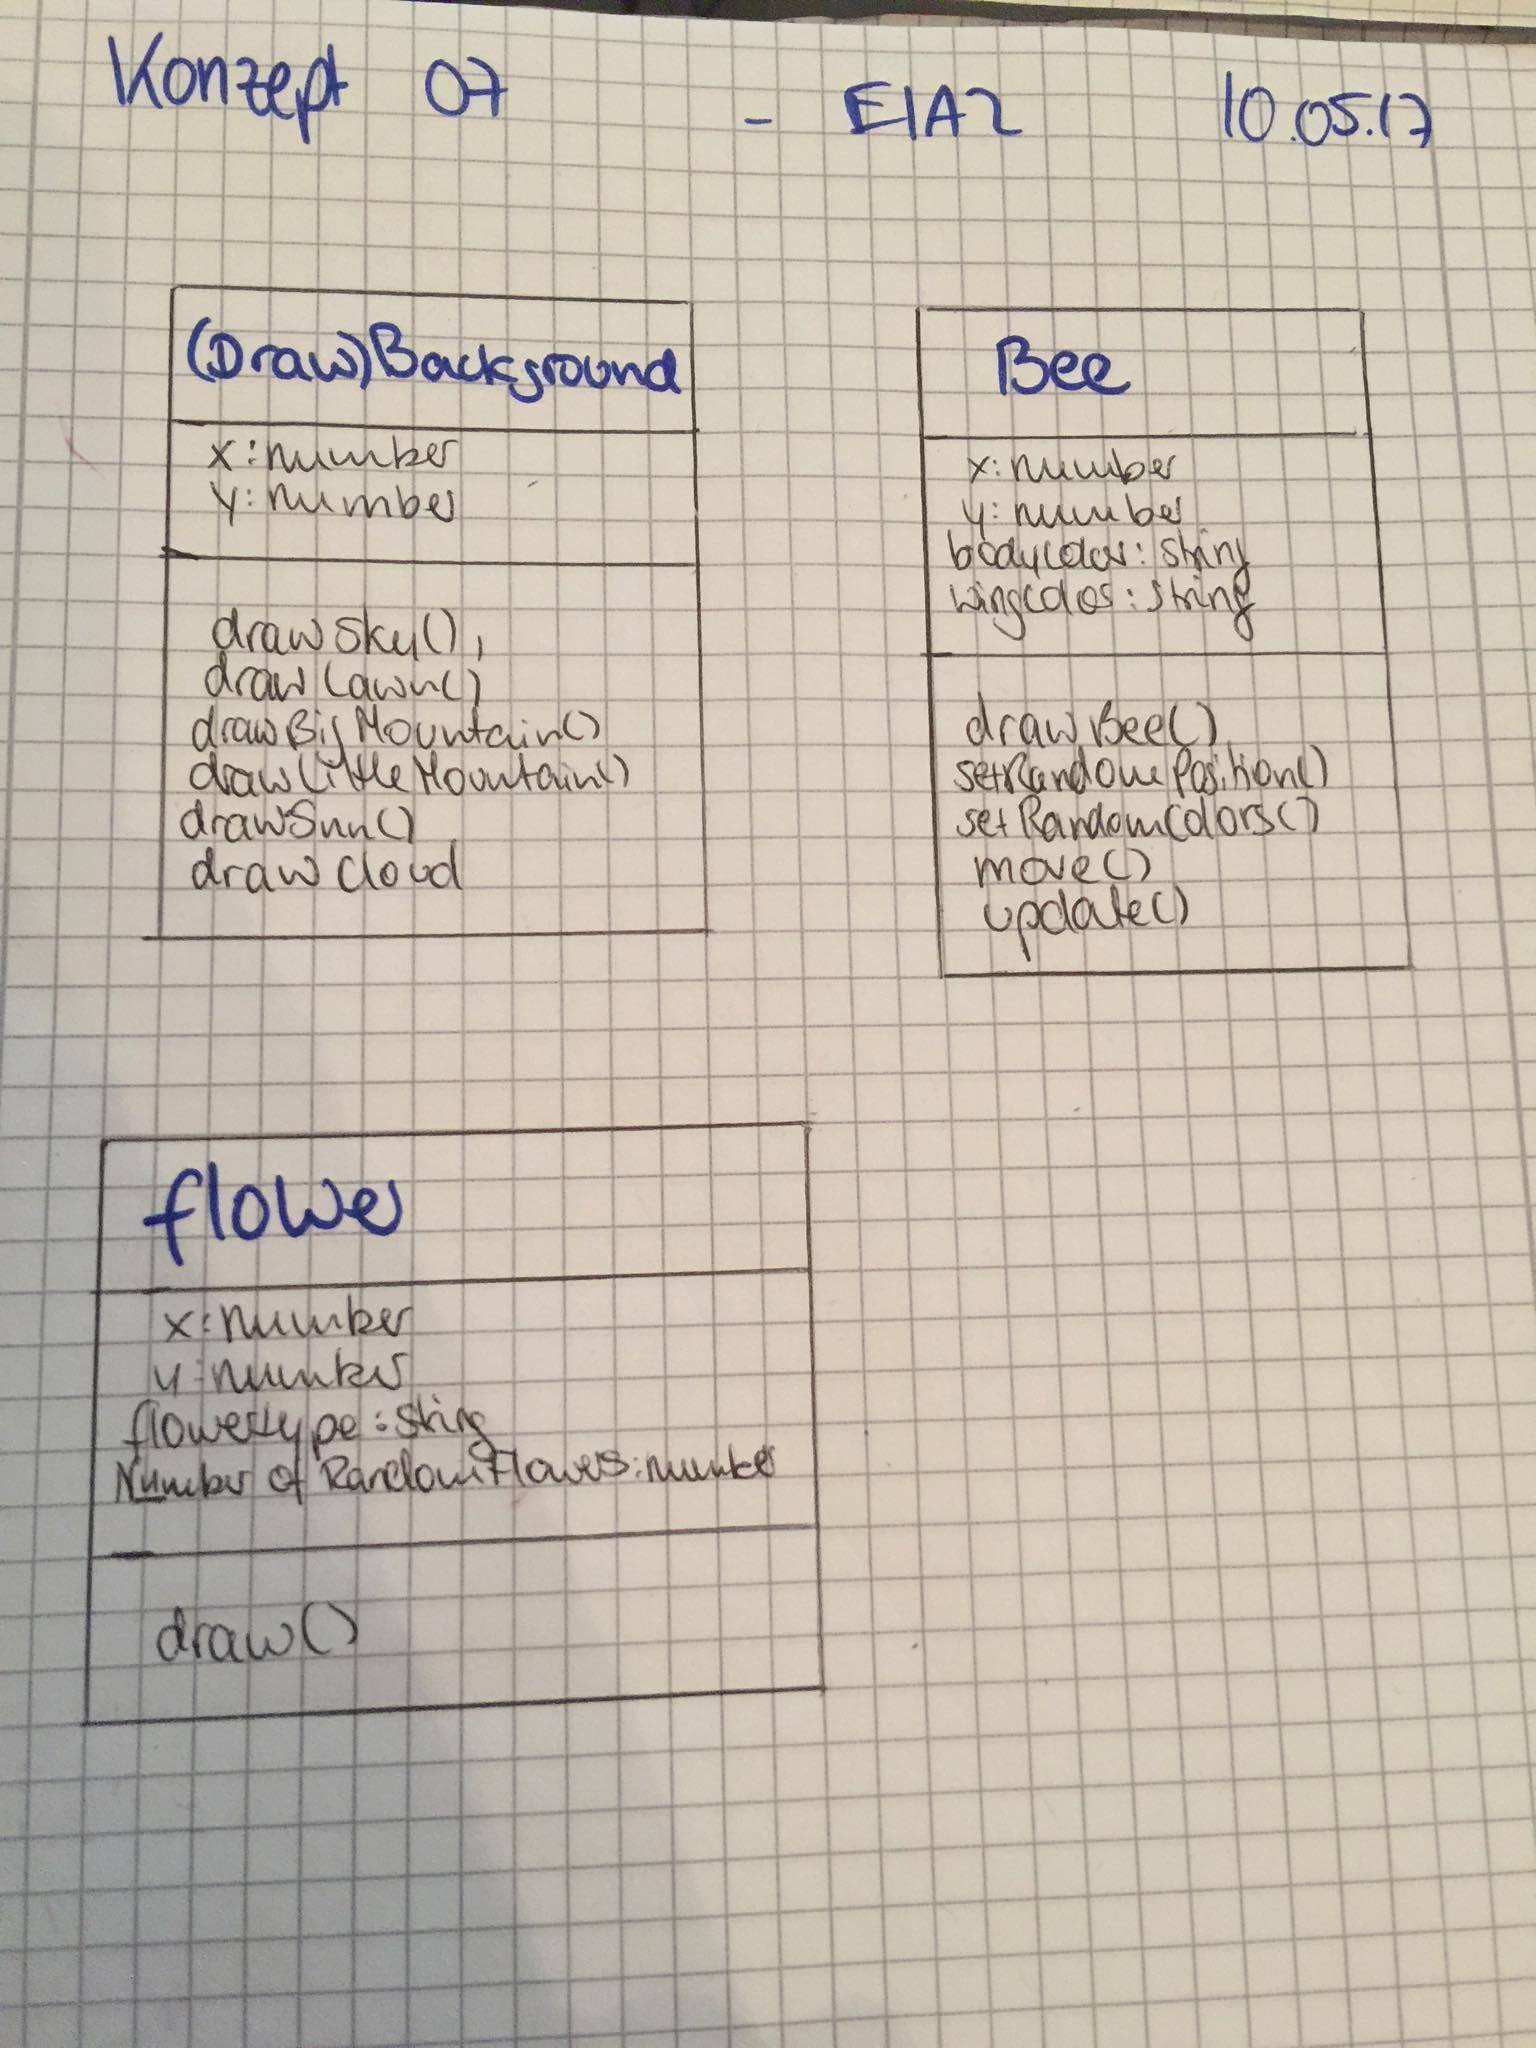 Konzept 07 - EIA2 10.05.17
(Draw)Background
x:number
y:number
drawSky(),
drawLawn()
drawBigMountain()
drawLittleMountain()
drawSun()
drawCloud
Bee
x:number
y:number
bodycolor:string
wingcolor:string
drawBee()
setRandomPosition()
setRandomColors()
move()
update()
flower
x:number
y:number
flowertype:string
Number of RandomFlowers:number
draw()